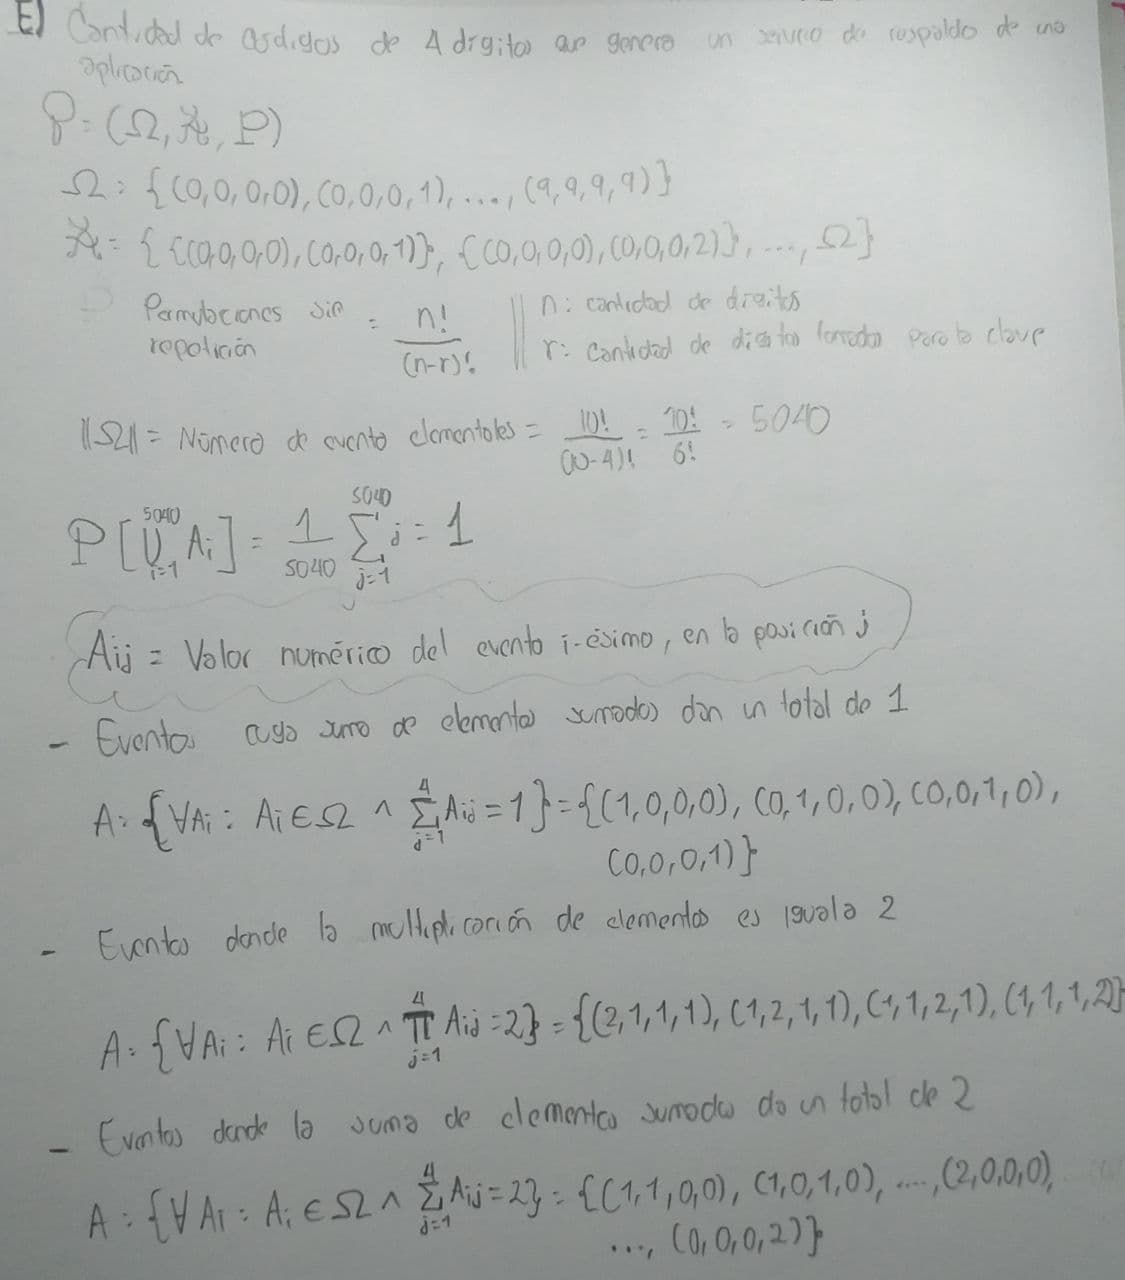 E) Cantidad de codigos de 4 digitos que genera un servicio de respaldo de una
aplicación
P = (Ω, A, P)
Ω = {(0,0,0,0), (0,0,0,1), ..., (9,9,9,9)}
A = { {(0,0,0,0), (0,0,0,1)}, {(0,0,0,0), (0,0,0,2)}, ..., Ω}
Permutaciones sin repetición = n! / (n-r)! || n: cantidad de digitos
r: cantidad de digitos tomados para la clave
||Ω|| = Número de evento elementales = 10! / (10-4)! = 10! / 6! = 5040
P[⋃_{i=1}^{5040} A_i] = 1/5040 ∑_{j=1}^{5040} j = 1
A_ij = Valor numérico del evento i-ésimo, en la posición j
- Eventos cuya suma de elementos sumados dan un total de 1
A = {∀A_i : A_i ∈ Ω ∧ ∑_{j=1}^{4} A_ij = 1} = {(1,0,0,0), (0,1,0,0), (0,0,1,0),
(0,0,0,1)}
- Eventos donde la multiplicación de elementos es iguala 2
A = {∀A_i : A_i ∈ Ω ∧ ∏_{j=1}^{4} A_ij = 2} = {(2,1,1,1), (1,2,1,1), (1,1,2,1), (1,1,1,2)}
- Eventos donde la suma de elementos sumados da un total de 2
A = {∀A_i : A_i ∈ Ω ∧ ∑_{j=1}^{4} A_ij = 2} = {(1,1,0,0), (1,0,1,0), ...., (2,0,0,0),
..., (0,0,0,2)}